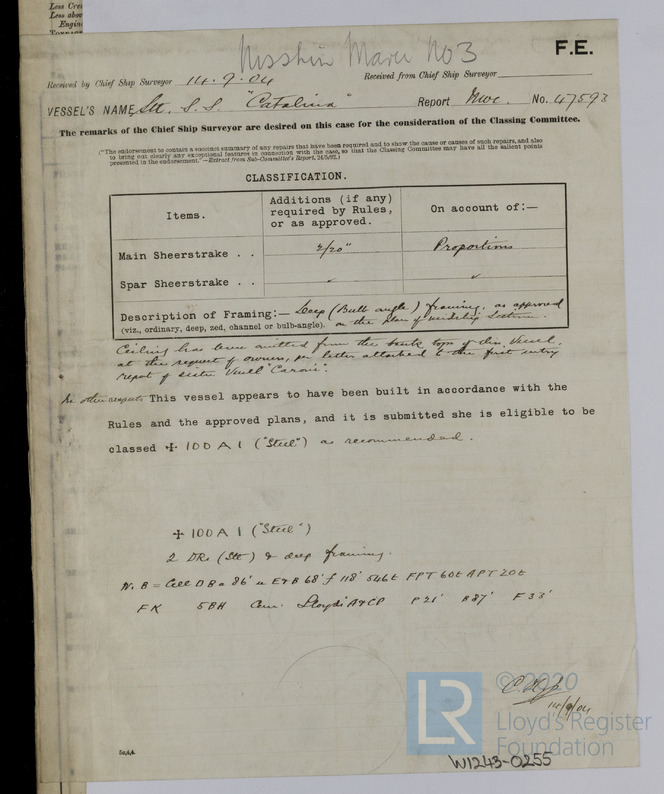 Less Cre
Less abov
Engin
Tonnage
Nisshin Maru No 3
F.E.
Received by Chief Ship Surveyor 14.9.04
Received from Chief Ship Surveyor
VESSEL'S NAME Stl. S.S. "Catalina" Report Nwc. No. 47593
The remarks of the Chief Ship Surveyor are desired on this case for the consideration of the Classing Committee.
("The endorsement to contain a succinct summary of any repairs that have been required and to show the cause or causes of such repairs, and also
to bring out clearly any exceptional features in connection with the case, so that the Classing Committee may have all the salient points
presented in the endorsement."—Extract from Sub-Committee's Report, 24/5/92.)
CLASSIFICATION.
Items.
Additions (if any)
required by Rules,
or as approved.
On account of:—
Main Sheerstrake . . 2/20" Proportions
Spar Sheerstrake . .
Description of Framing:— Deep (Bulb angle) framing, as approved
(viz., ordinary, deep, zed, channel or bulb-angle). on the plan of midship section.
Ceiling has been omitted from the tank tops of this Vessel,
at the request of owners, per letter attached to the first entry
report of sister Vessel
In other respects This vessel appears to have been built in accordance with the
Rules and the approved plans, and it is submitted she is eligible to be
classed ✠ 100 A 1 ("Steel") as recommended.
✠ 100 A 1 ("Steel")
2 Dks (Stl) & deep framing.
W.B = Cell D B a 86' u E&B 68' f 118' 546t FPT 60t APT 20t
FK 5BH Cem. Lloyd's A&CP P 21' B 87' F 33'
14/9/04
LR
© 2020
Lloyd's Register
Foundation
W1243-0255